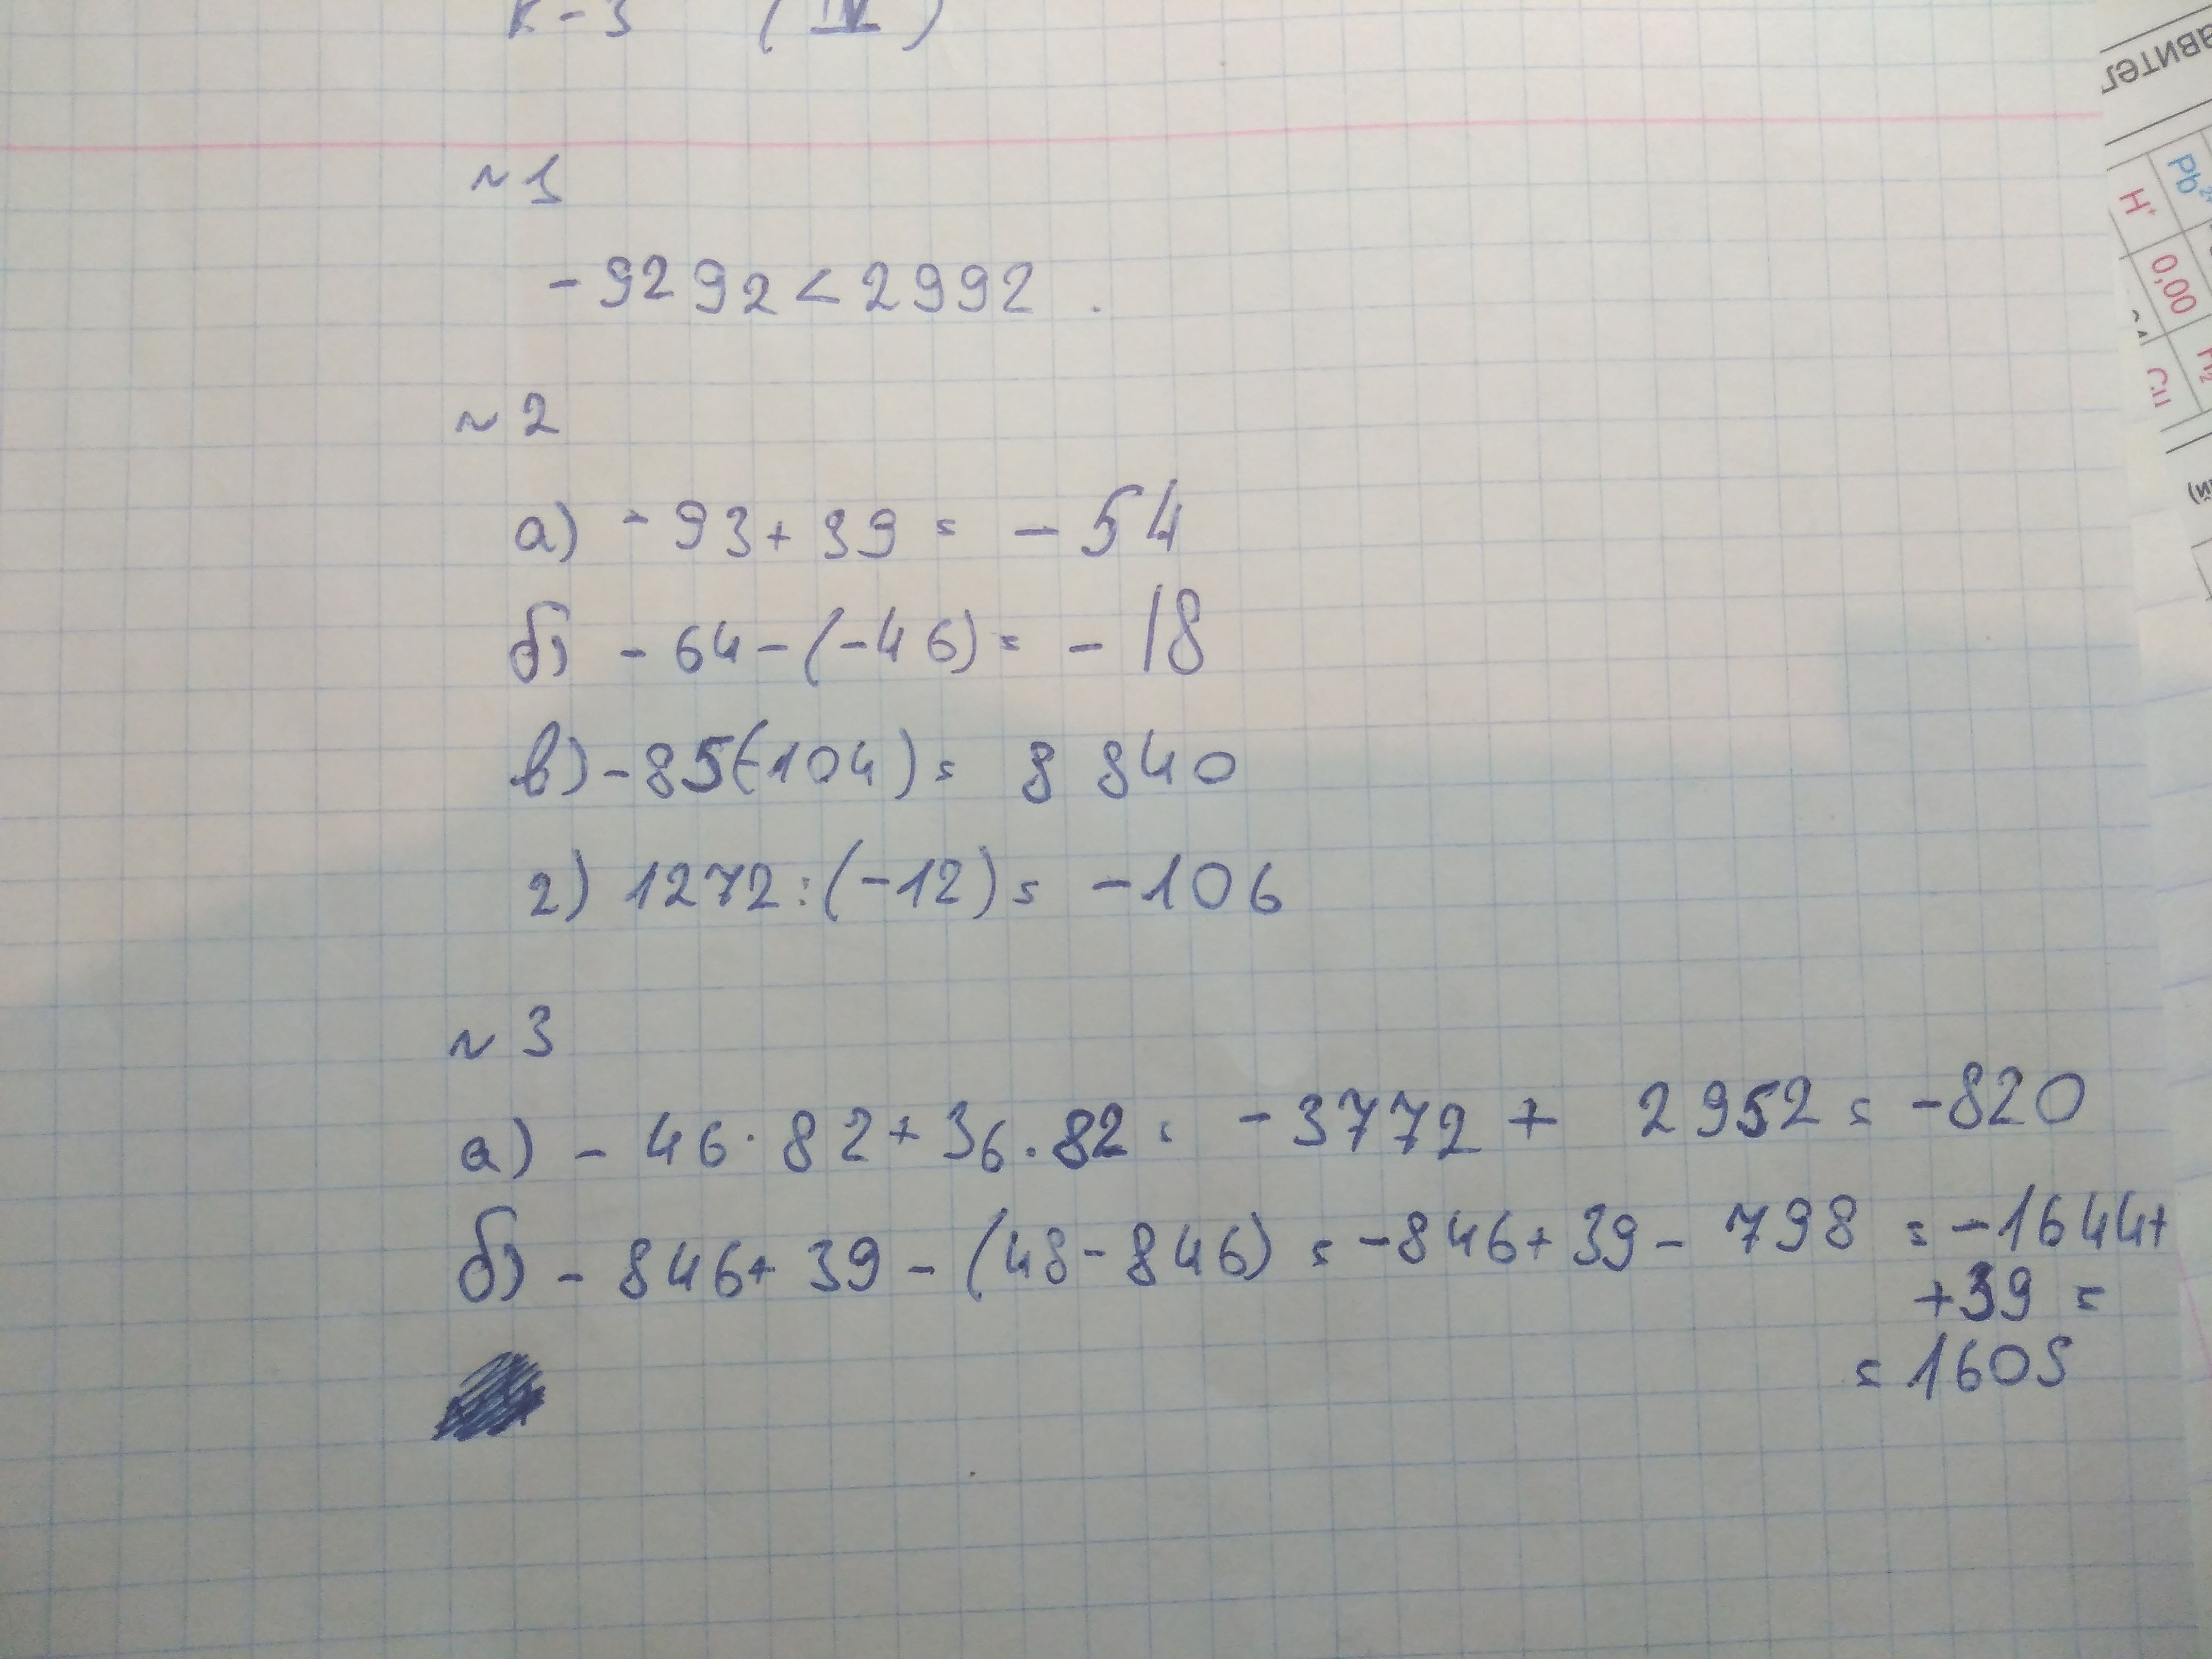 К-3 (IV)
~1
-9292<2992.
~2
а) -93+39= -54
б) -64-(-46)= -18
в) -85(-104)= 8 840
г) 1272:(-12)= -106
~3
а) -46·82+36·82= -3772 + 2952= -820
б) -846+39-(48-846)=-846+39-798 =-1644+
+39 =
=1605
авител
Pb²⁺
H⁺
0,00
H₂
Cu